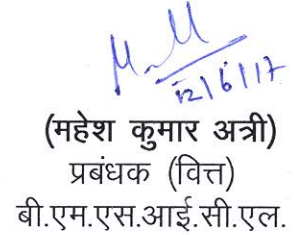 12/6/17
(महेश कुमार अत्री)
प्रबंधक (वित्त)
बी.एम.एस.आई.सी.एल.